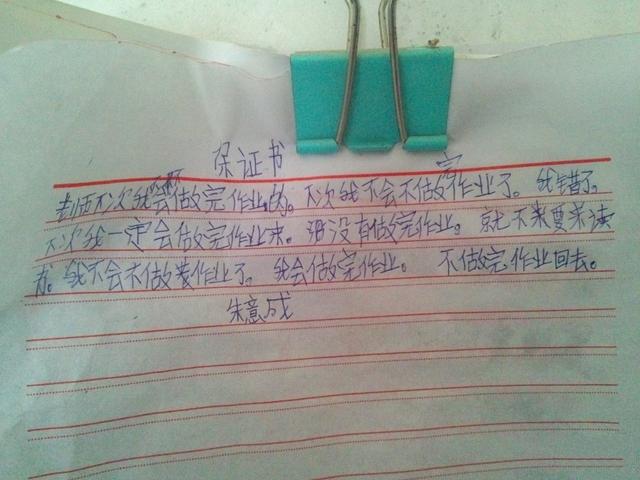 保证书
完
老师下次我会做完作业的。下次我不会不做作业了。我错了。
下次我一定会做完作业来。没有做完作业。就不来要来读
书。我不会不做完作业了。我会做完作业。不做完作业回去。
朱意成